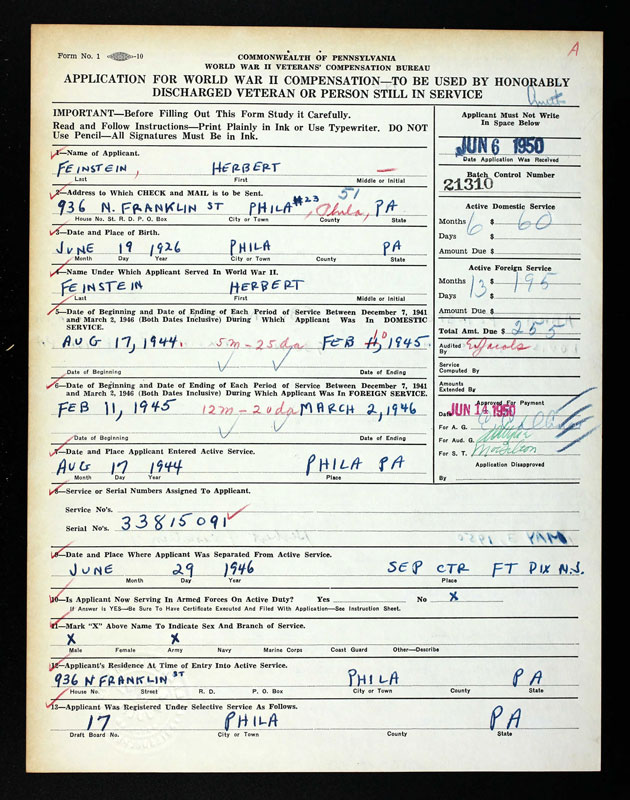 Form No. 1 -10
A
COMMONWEALTH OF PENNSYLVANIA
WORLD WAR II VETERANS' COMPENSATION BUREAU
APPLICATION FOR WORLD WAR II COMPENSATION—TO BE USED BY HONORABLY
DISCHARGED VETERAN OR PERSON STILL IN SERVICE
IMPORTANT—Before Filling Out This Form Study it Carefully.
Read and Follow Instructions—Print Plainly in Ink or Use Typewriter. DO NOT
Use Pencil—All Signatures Must Be in Ink.
Applicant Must Not Write
In Space Below
JUN 6 1950
Date Application Was Received
Batch Control Number
21310
Active Domestic Service
Months 6 $ 60
Days
Amount Due $
Active Foreign Service
Months 13 $ 195
Days
Amount Due $
Total Amt. Due $ 255
Audited By
Service
Computed By
Amounts
Extended By
Approved For Payment
Date JUN 14 1950
For A. G.
For Aud. G.
For S. T.
Application Disapproved
By
1—Name of Applicant.
FEINSTEIN, HERBERT —
Last First Middle or Initial
2—Address to Which CHECK and MAIL is to be Sent.
936 N. FRANKLIN ST PHILA #23 51 Phila, PA
House No. St. R. D. P. O. Box City or Town County State
3—Date and Place of Birth.
JUNE 19 1926 PHILA PA
Month Day Year City or Town State
4—Name Under Which Applicant Served In World War II.
FEINSTEIN HERBERT
Last First Middle or Initial
5—Date of Beginning and Date of Ending of Each Period of Service Between December 7, 1941
and March 2, 1946 (Both Dates Inclusive) During Which Applicant Was In DOMESTIC
SERVICE.
AUG 17, 1944 5m-25da FEB 10, 1945
Date of Beginning Date of Ending
6—Date of Beginning and Date of Ending of Each Period of Service Between December 7, 1941
and March 2, 1946 (Both Dates Inclusive) During Which Applicant Was In FOREIGN SERVICE.
FEB 11, 1945 12m-20da MARCH 2, 1946
Date of Beginning Date of Ending
7—Date and Place Applicant Entered Active Service.
AUG 17 1944 PHILA PA
Month Day Year Place
8—Service or Serial Numbers Assigned To Applicant.
Service No's.
Serial No's. 33815091
9—Date and Place Where Applicant Was Separated From Active Service.
JUNE 29 1946 SEP CTR FT DIX N.J.
Month Day Year Place
10—Is Applicant Now Serving In Armed Forces On Active Duty? Yes No X
If Answer is YES—Be Sure To Have Certificate Executed And Filed With Application—See Instruction Sheet.
11—Mark "X" Above Name To Indicate Sex and Branch of Service.
X X
Male Female Army Navy Marine Corps Coast Guard Other—Describe
12—Applicant's Residence At Time of Entry Into Active Service.
936 N FRANKLIN ST PHILA PA
House No. Street R. D. P. O. Box City or Town County State
13—Applicant Was Registered Under Selective Service As Follows.
17 PHILA PA
Draft Board No. City or Town County State